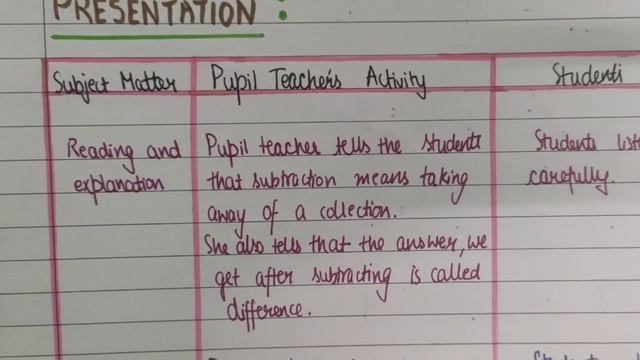 PRESENTATION :
Subject Matter Pupil Teacher's Activity Students
Reading and
explanation
Pupil teacher tells the students
that subtraction means taking
away of a collection.
She also tells that the answer, we
get after subtracting is called
difference.
Students list
carefully.